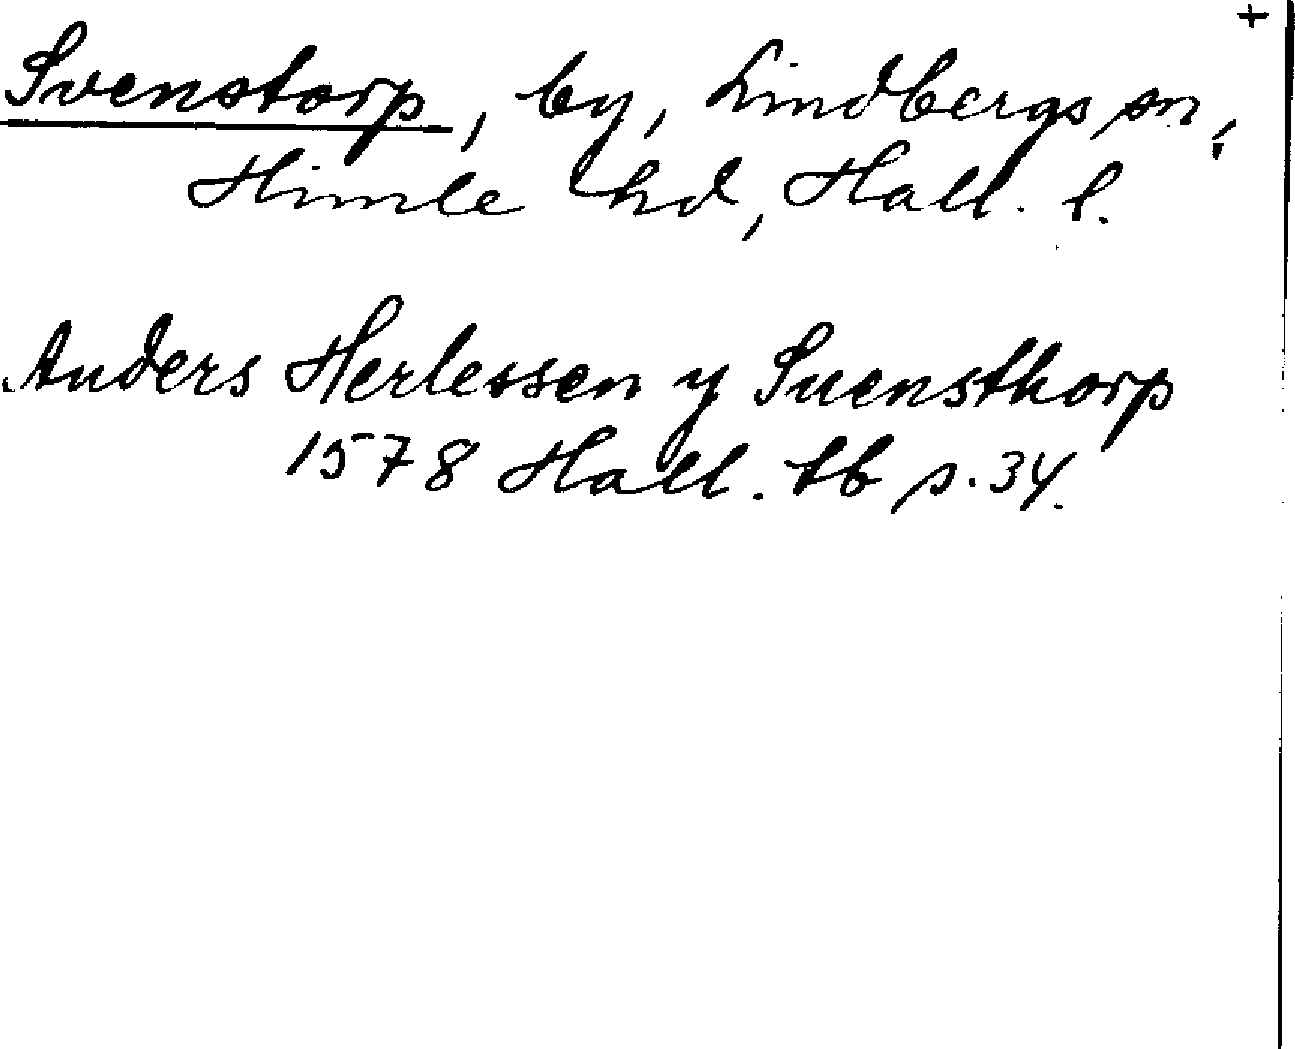 +
Svenstorp, by, Lindbergs sn,
Himle hd, Hall. l.
Anders Herlessen y Suensthorp
1578 Hall. tb s. 34.